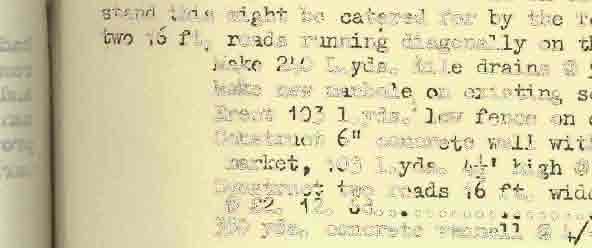 stand this might be catered for by the
two 16 ft. roads running diagonally on
Make 240 L.yds. tile drains @
Make new manhole on existing
Erect 103 L.yds. low fence on
Construct 6" concrete wall
market, 103 L.yds. 4½' high @
Construct two roads 16 ft.
@ £2. 12.
yds. concrete @ 4/